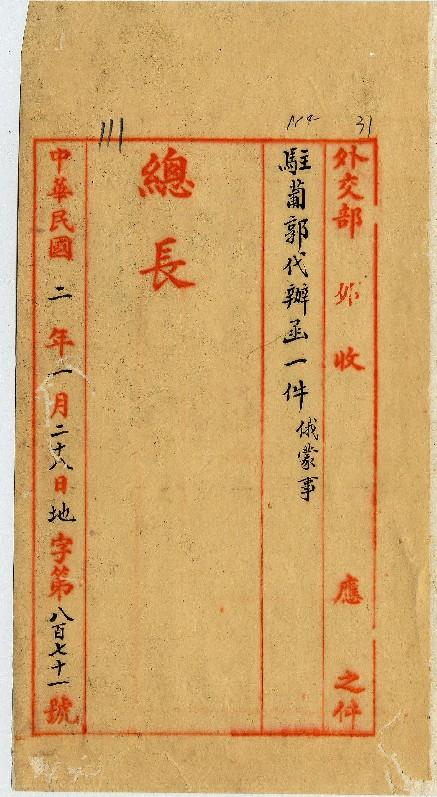 31
外交部 外 收 應 之件
駐葡郭代辦函一件 俄蒙事
總長
中華民國二年一月二十八日地字第八百七十一號